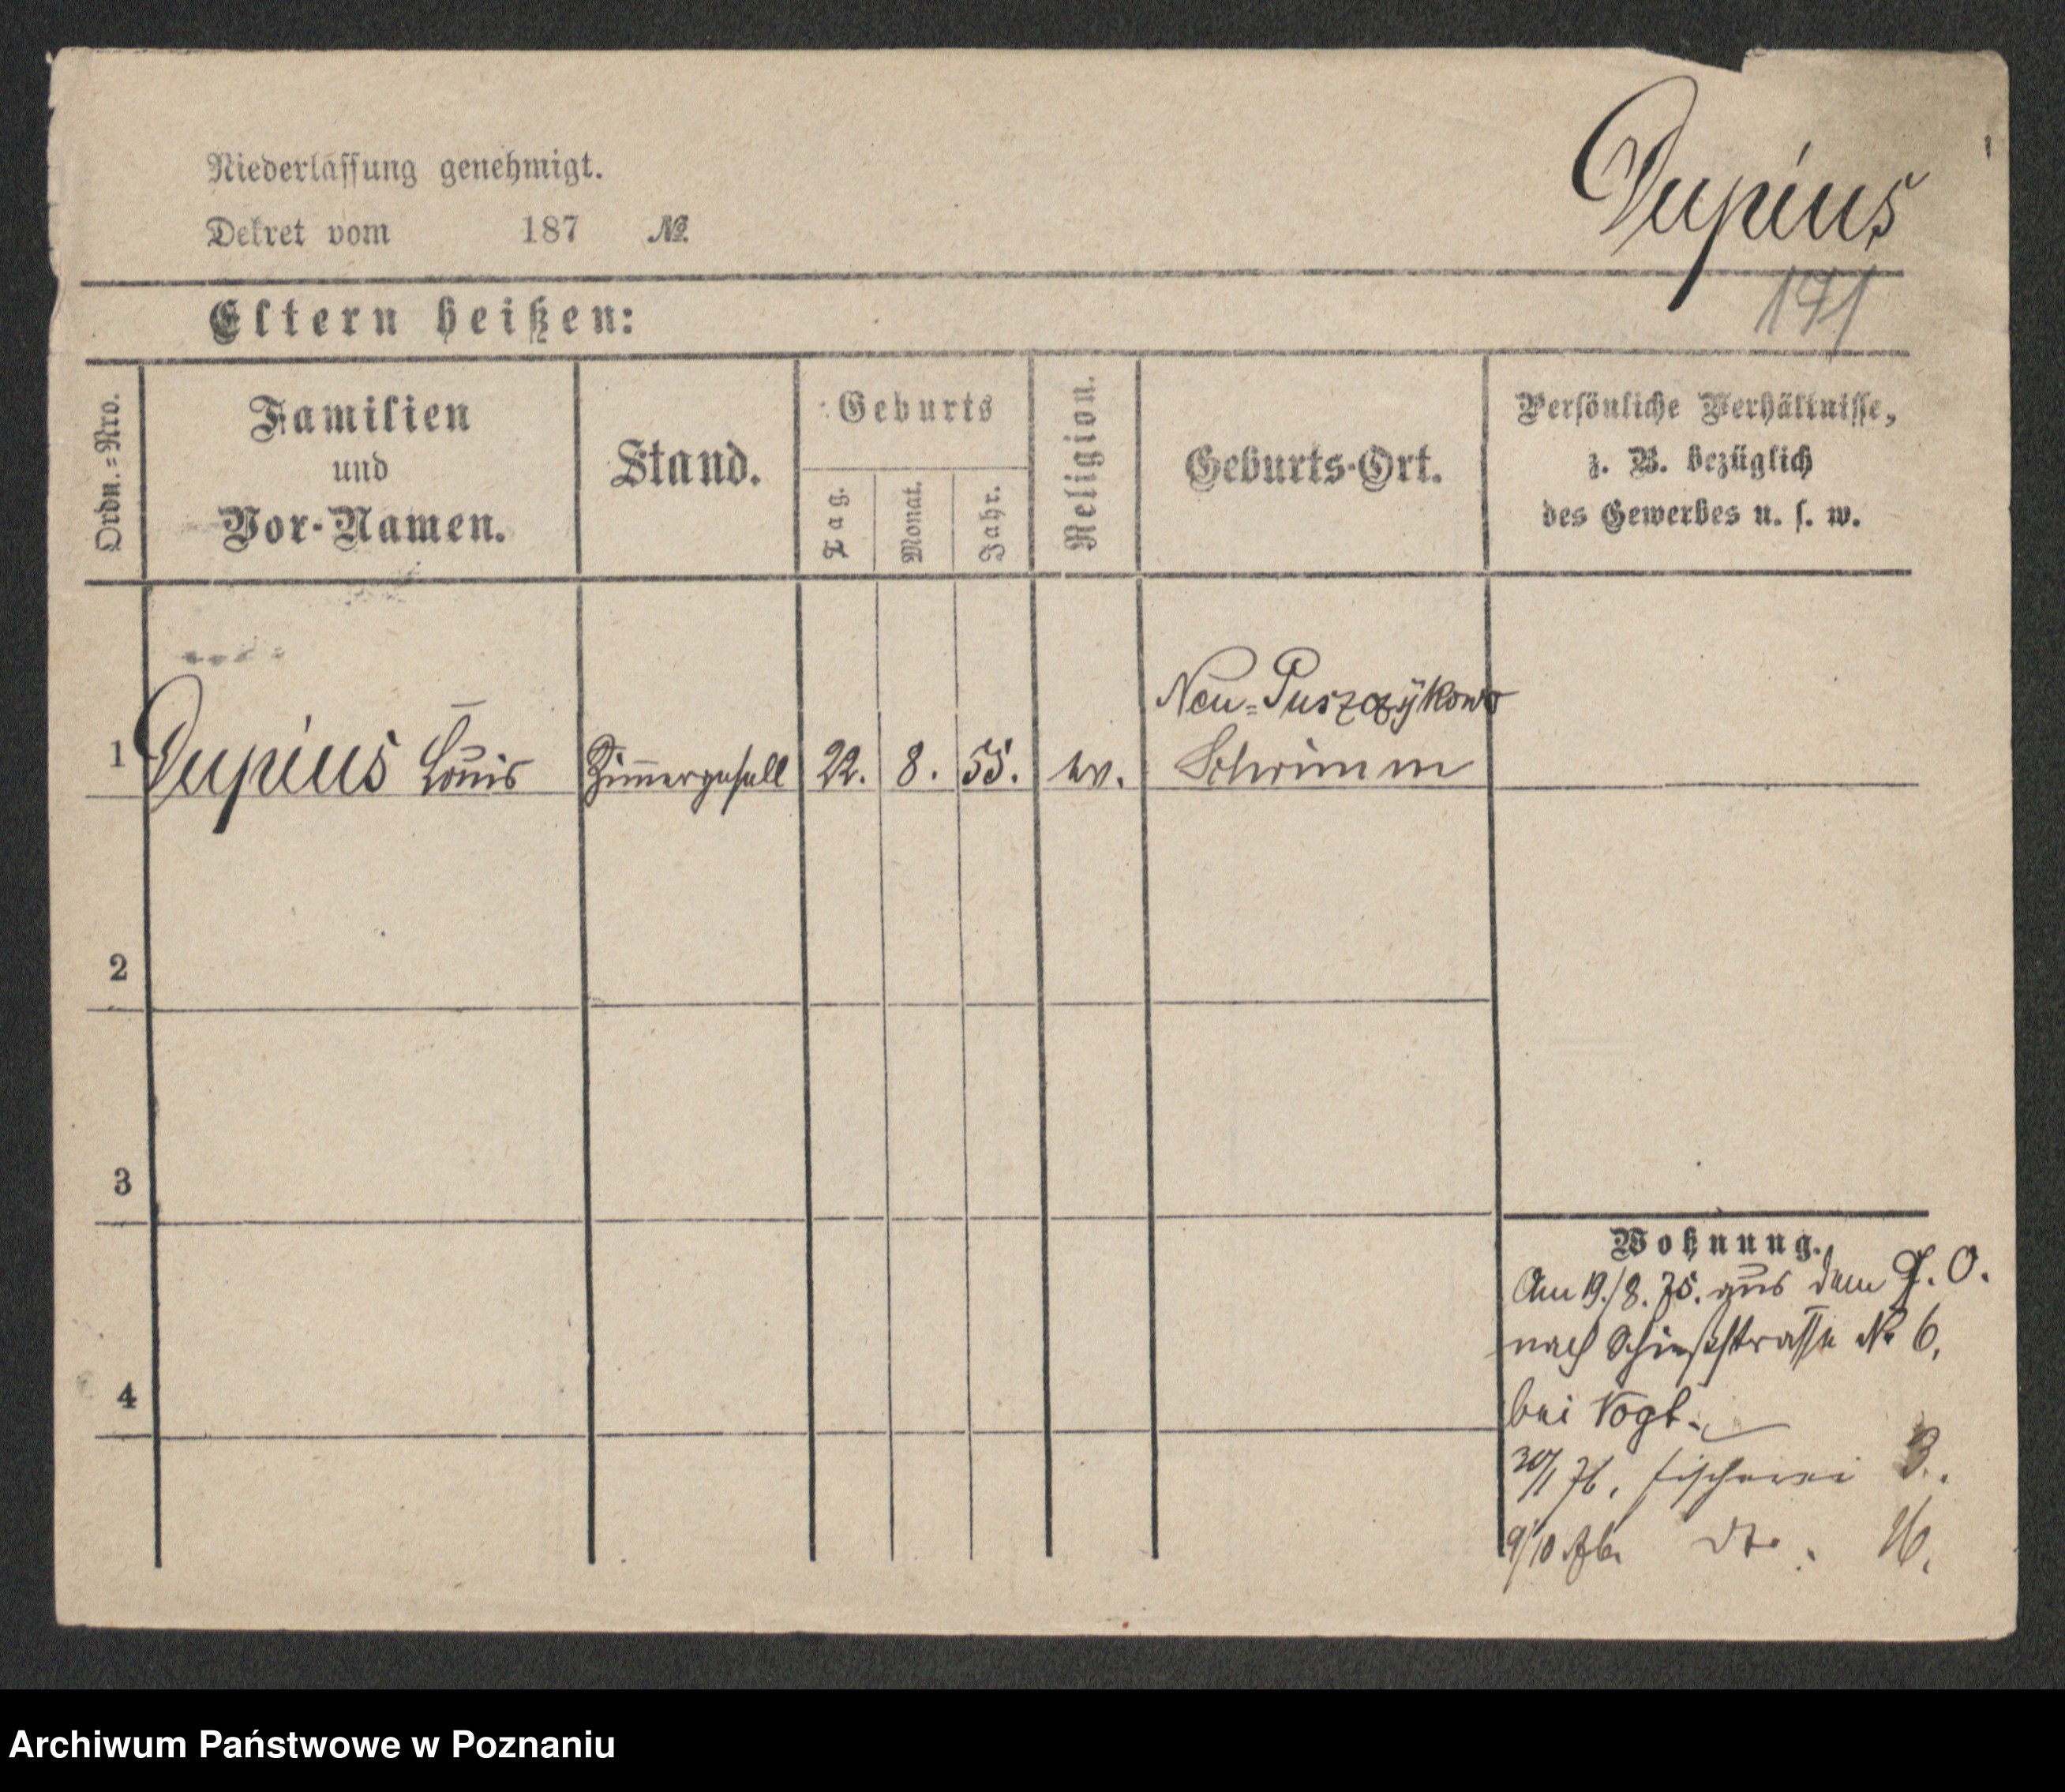 Dupius
Niederlassung genehmigt.
Dekret vom 187 №
191
Eltern heißen:
Ordn.=Nro.
Familien
und
Vor-Namen.
Stand.
Geburts
Tag.
Monat.
Jahr.
Religion.
Geburts-Ort.
Persönliche Verhältnisse,
z. B. bezüglich
des Gewerbes u. s. w.
Neu=Puszczykowo
1 Dupius Louis Zimmergesell 22. 8. 55. ev. Schrimm
2
3
4
Wohnung.
Am 19./8. 75. aus dem P. O.
nach Schießstrasse No 6.
bei Vogt.
30/1 76. Fischerei 3.
9/10 76. dto. 16.
Archiwum Państwowe w Poznaniu